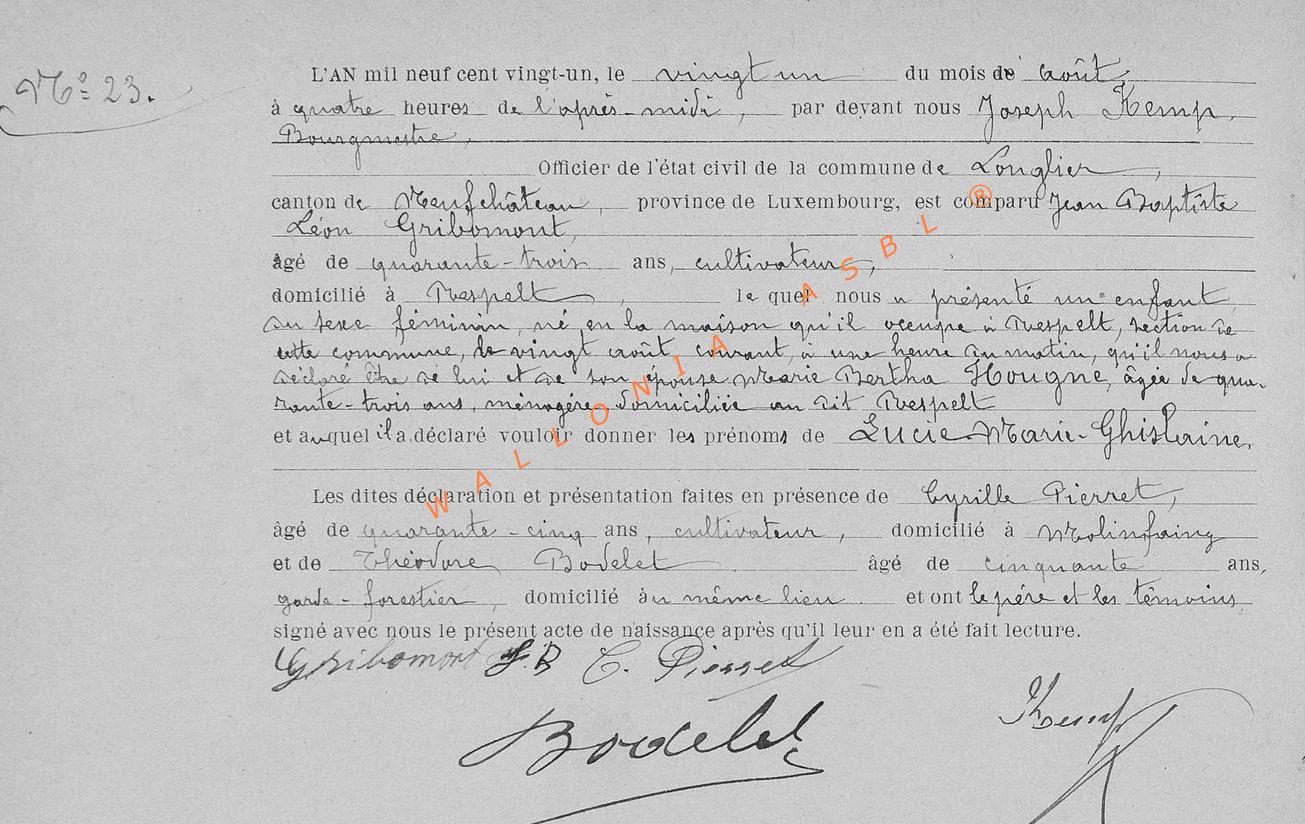 Nº 23.
L'AN mil neuf cent vingt-un, le vingt un du mois de août,
à quatre heures de l'après-midi, par devant nous Joseph Kemp,
Bourgmestre,
Officier de l'état civil de la commune de Longlier,
canton de Neufchâteau, province de Luxembourg, est comparu Jean Baptiste
Léon Gribomont,
âgé de quarante-trois ans, cultivateur,
domicilié à Respelt, le quel nous a présenté un enfant
du sexe féminin, né en la maison qu'il occupe à Respelt, section de
cette commune, le vingt août courant, à une heure du matin, qu'il nous a
déclaré être de lui et de son épouse Marie Bertha Hougne, âgée de qua-
rante-trois ans, ménagère, domiciliée au dit Respelt
et auquel il a déclaré vouloir donner les prénoms de Lucie-Marie-Ghislaine.
Les dites déclaration et présentation faites en présence de Cyrille Pierret,
âgé de quarante-cinq ans, cultivateur, domicilié à Molinfaing
et de Théodore Bodelet âgé de cinquante ans,
garde-forestier, domicilié au même lieu. et ont le père et les témoins
signé avec nous le présent acte de naissance après qu'il leur en a été fait lecture.
Gribomont J. B C. Pierret
Bodelet
Kemp
WALLONIA ASBL ®